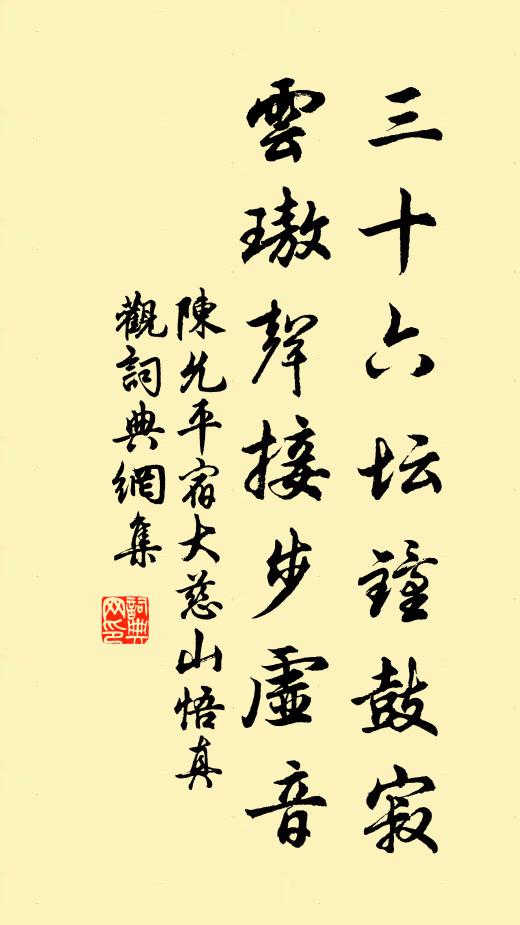 三十六坛鐘鼓寂
雲璈聲接步虛音
陳允平宿大慈山悟真
觀詞典網集
詞典网印